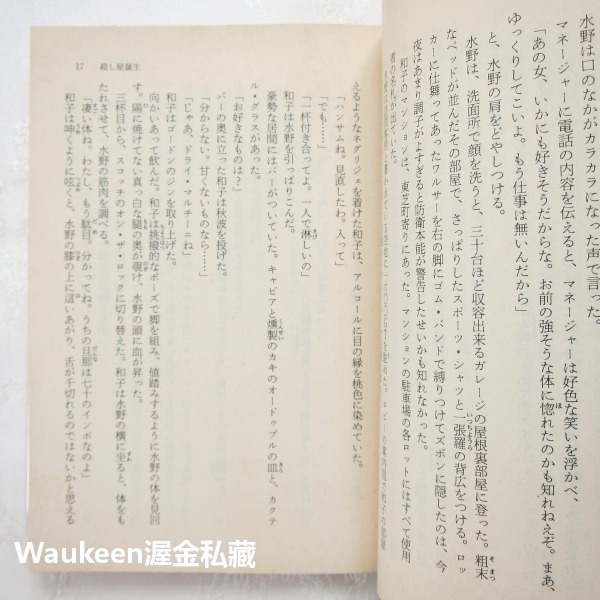 水野は口のなかがカラカラになった声で言った。
マネージャーに電話の内容を伝えると、マネージャーは好色な笑いを浮かべ、
「あの女、いかにも好きそうだからな。お前の強そうな体に惚れたのかも知れねえぞ。まあ、
ゆっくりしてこいよ。もう仕事は無いんだから」
と、水野の肩をどやしつける。
水野は、洗面所で顔を洗うと、三十台ほど収容出来るガレージの屋根裏部屋に登った。粗末
なベッドが並んだその部屋で、さっぱりしたスポーツ・シャツと一張羅の背広をつける。ロッ
カーに仕舞ってあったワルサーを右の脚にゴム・バンドで縛りつけてズボンに隠したのは、今
夜はあまり調子がよすぎると防衛本能が警告したせいかも知れなかった。
和子のマンションは、東芝町寄りにあった。マンションの駐車場の各ロットにはすべて使用
者の名札が出ている
17 殺し屋誕生
えるようなネグリジェを着けた和子は、アルコールに目の縁を桃色に染めていた。
「ハンサムね。見直したわ。入って」
「でも……」
「一杯付き合ってよ。一人で淋しいの」
和子は水野を引っぱりこんだ。
豪勢な居間にはバーがついていた。キャビアと燻製のカキのオードゥブルの皿と、カクテ
ル・グラスがあった。
「お好きなものは?」
バーの奥に立った和子は秋波を投げた。
「分からない。甘くないものなら……」
「じゃあ、ドライ・マルチーニね」
和子はゴードンのジンを取り上げた。
向かいあって飲んだ。和子は挑撥的なポーズで脚を組み、値踏みするように水野の体を見回
す。陽に焼けてない真っ白な腿の奥が覗け、水野の頭に血が昇った。
三杯目から、スコッチのオン・ザ・ロックに切り替えた。和子は水野の横に坐ると、体をも
たれさせて、水野の筋肉を調べる。
「凄い体ね。わたし、もう駄目。分かってね。うちの旦那は七十のインポなのよ」
和子は呻くように呟くと、水野の膝の上に這いあがり、舌が千切れるのではないかと思える
Waukeen渥金私藏